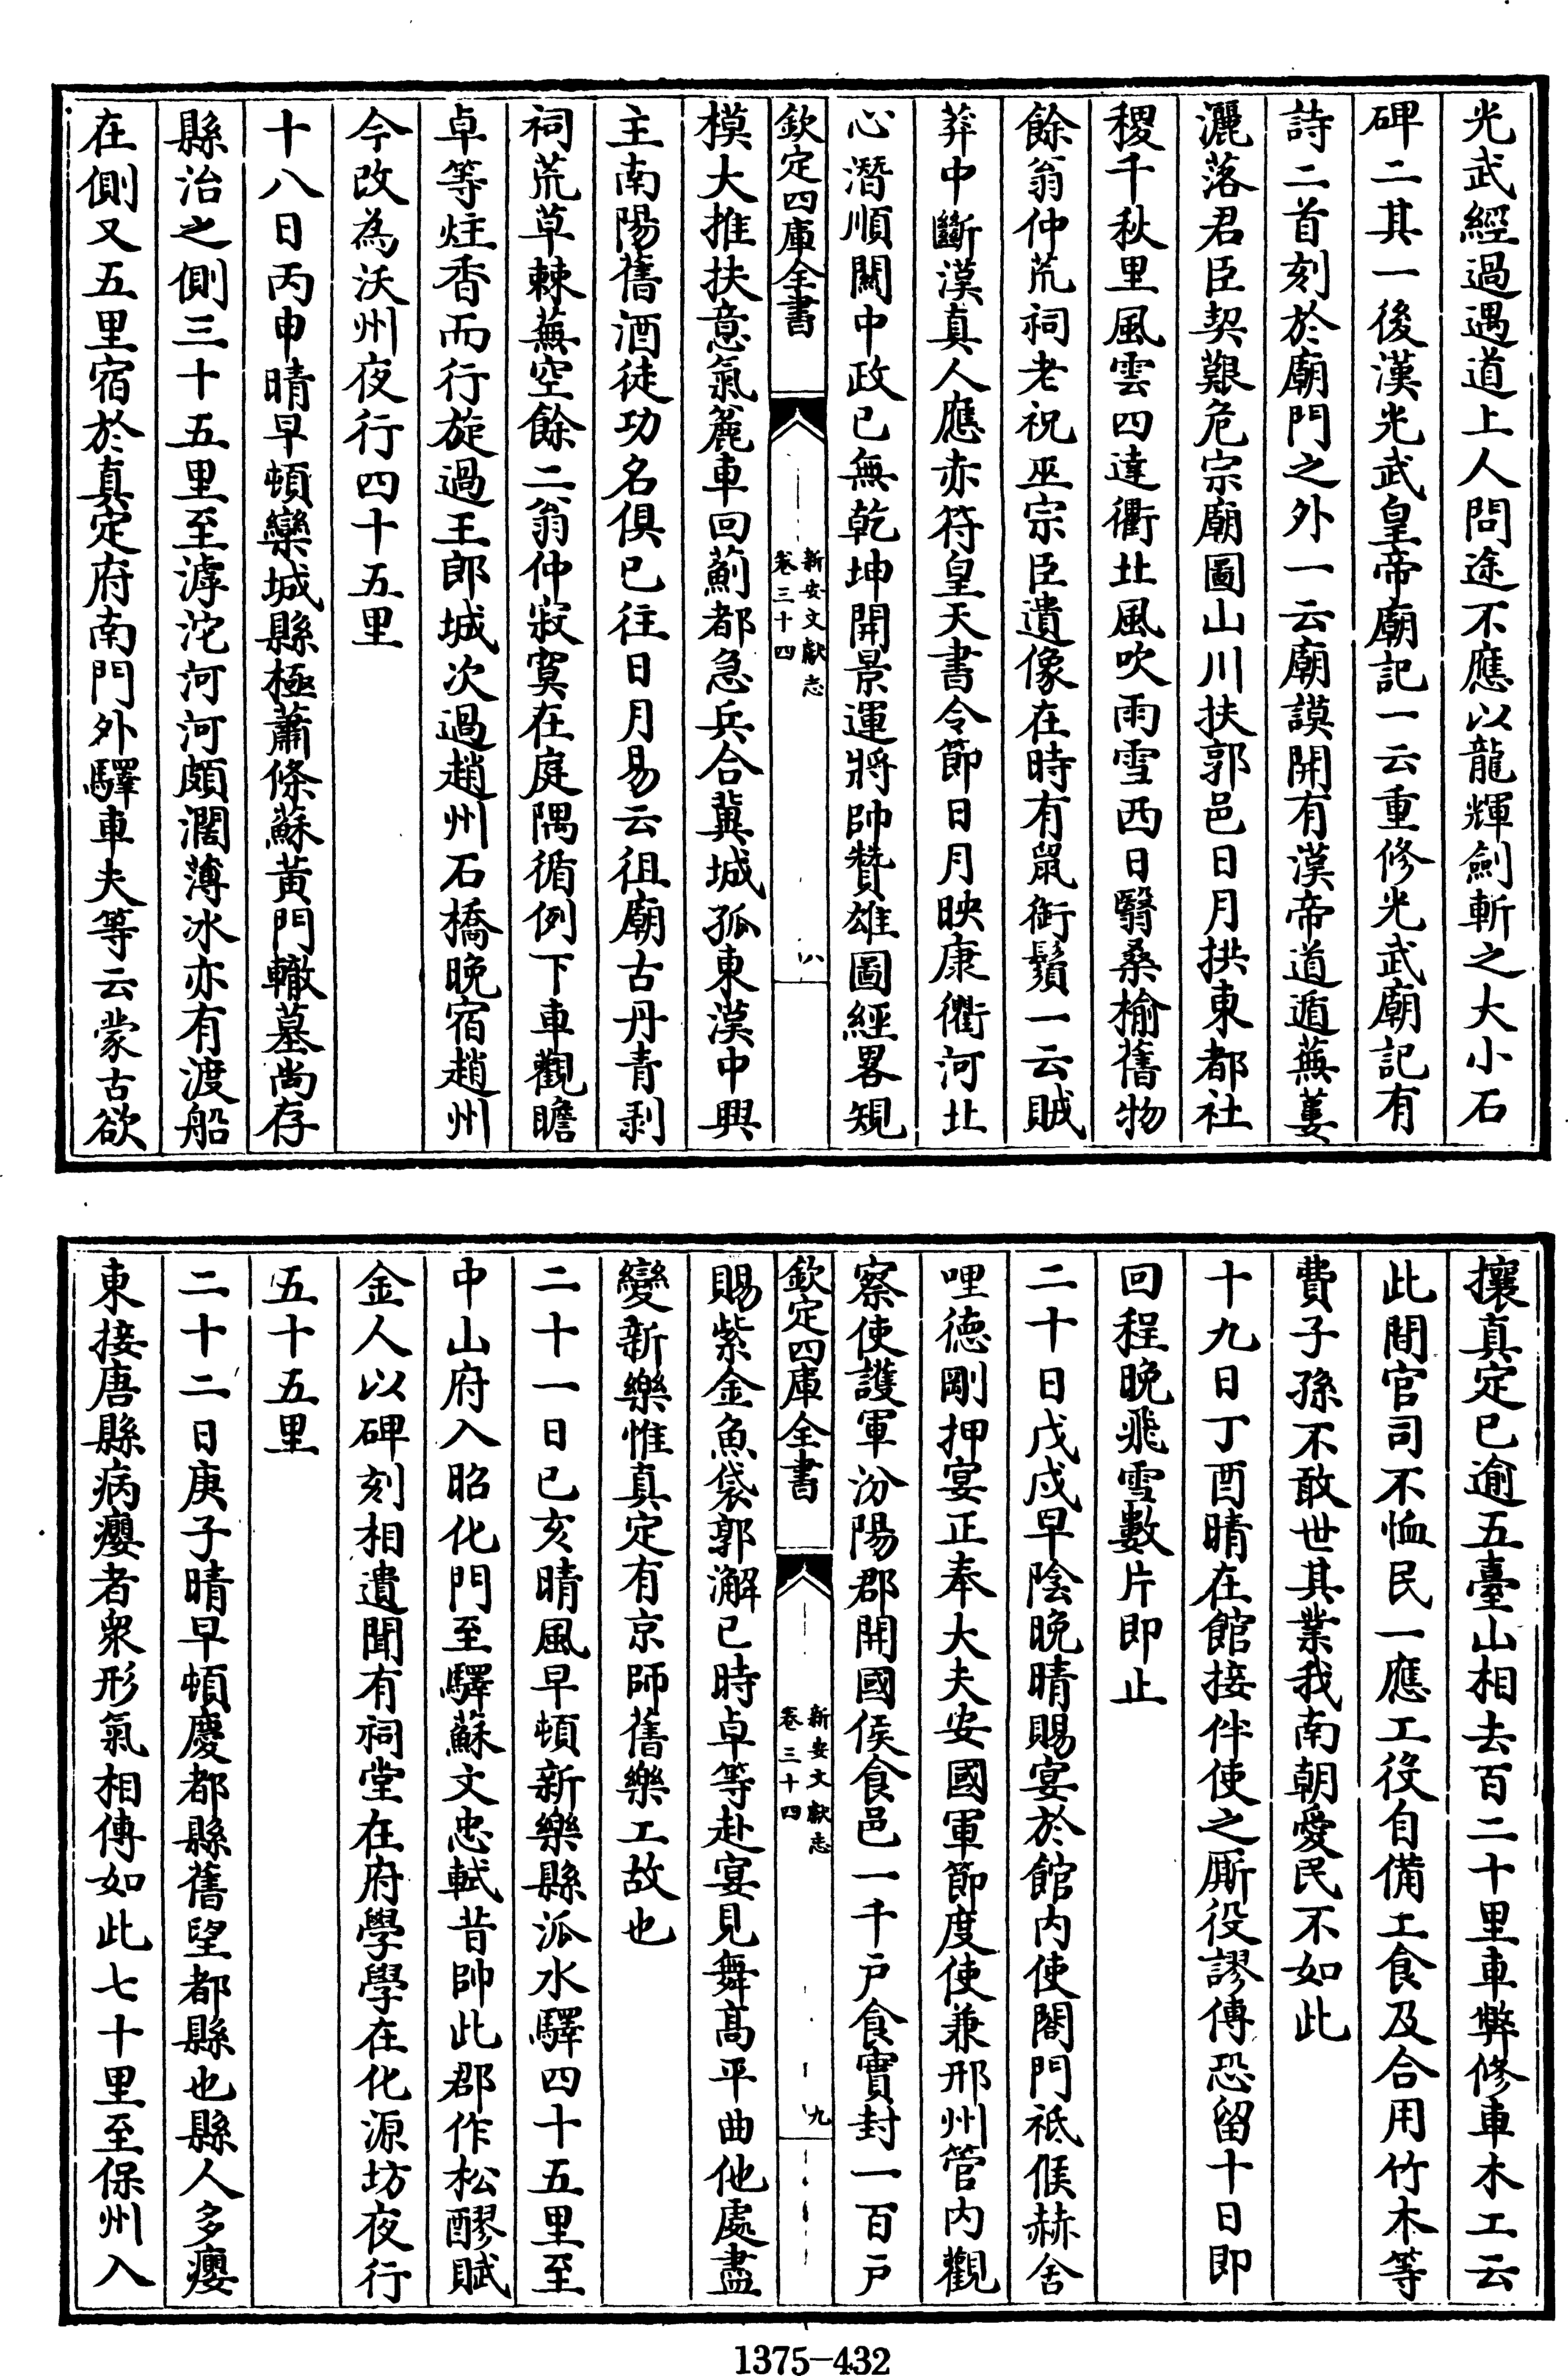 光武經過遇道上人問途不應以龍輝劍斬之大小石
碑二其一後漢光武皇帝廟記一云重修光武廟記有
詩二首刻於廟門之外一云廟謨開有漢帝道遁蕪蔞
灑落君臣契艱危宗廟圖山川扶郭邑日月拱東都社
稷千秋里風雲四達衢北風吹雨雪西日翳桑榆舊物
餘翁仲荒祠老祝巫宗臣遺像在時有鼠銜鬚一云賊
莽中斷漢真人應赤符皇天書令節日月映康衢河北
心潛順關中政已無乾坤開景運將帥贊雄圖經畧規
欽定四庫全書
新安文獻志
卷三十四
八
模大推扶意氣麄車回薊都急兵合冀城孤東漢中興
主南陽舊酒徒功名俱已往日月易云徂廟古丹青剥
祠荒草棘蕪空餘二翁仲寂寞在庭隅循例下車觀瞻
卓等炷香而行旋過王郎城次過趙州石橋晚宿趙州
今改為沃州夜行四十五里
十八日丙申晴早頓欒城縣極蕭條蘇黃門轍墓尚存
縣治之側三十五里至滹沱河河頗濶薄冰亦有渡船
在側又五里宿於真定府南門外驛車夫等云蒙古欲
攘真定已逾五臺山相去百二十里車弊修車木工云
此間官司不恤民一應工役自備工食及合用竹木等
費子孫不敢世其業我南朝愛民不如此
十九日丁酉晴在館接伴使之厮役謬傳恐留十日即
回程晚飛雪數片即止
二十日戊戌早陰晚晴賜宴於館内使閤門祗候赫舍
哩德剛押宴正奉大夫安國軍節度使兼邢州管内觀
察使護軍汾陽郡開國侯食邑一千户食實封一百户
欽定四庫全書
新安文獻志
卷三十四
九
賜紫金魚袋郭澥已時卓等赴宴見舞高平曲他處盡
變新樂惟真定有京師舊樂工故也
二十一日已亥晴風早頓新樂縣派水驛四十五里至
中山府入昭化門至驛蘇文忠軾昔帥此郡作松醪賦
金人以碑刻相遺聞有祠堂在府學學在化源坊夜行
五十五里
二十二日庚子晴早頓慶都縣舊望都縣也縣人多癭
東接唐縣病癭者衆形氣相傳如此七十里至保州入
1375-432